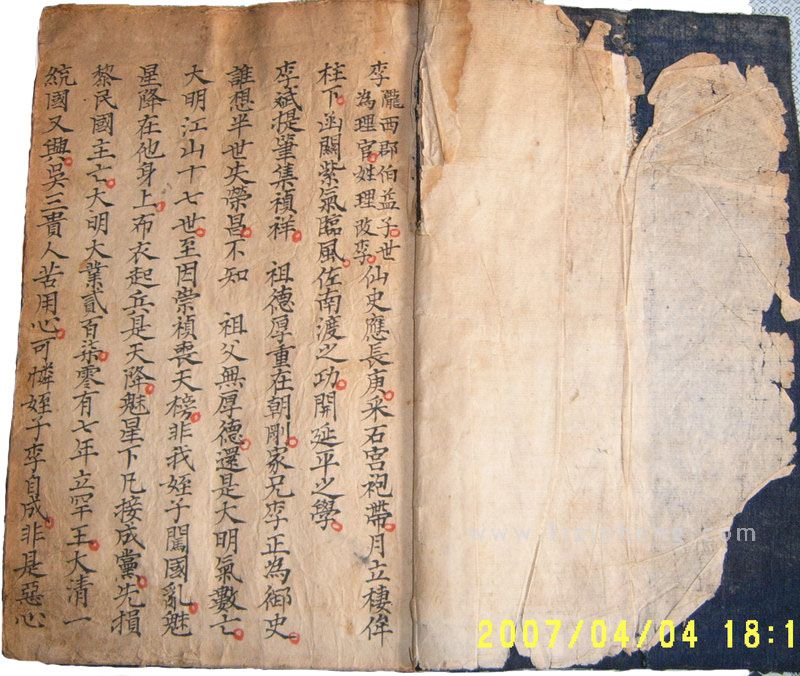 李
隴西郡伯益子世
為理官姓理改李
仙史應長庚采石宮袍帶月立棲侔
柱下函關紫氣臨風佐南渡之功開延平之學
李斌提筆集禎祥 祖德厚重在朝剛家兄李正為御史
誰想半世失榮昌不知 祖父無厚德還是大明氣數亡
大明江山十七世至因崇禎喪天榜非我姪子闖國亂魅
星降在他身上布衣起兵是天降魅星下凡接成黨先損
黎民國主亡大明大業貳百柒零有七年立罕王大清一
統國又興吳三貴人苦用心可憐姪子李自成非是惡心
2007/04/04 18:1